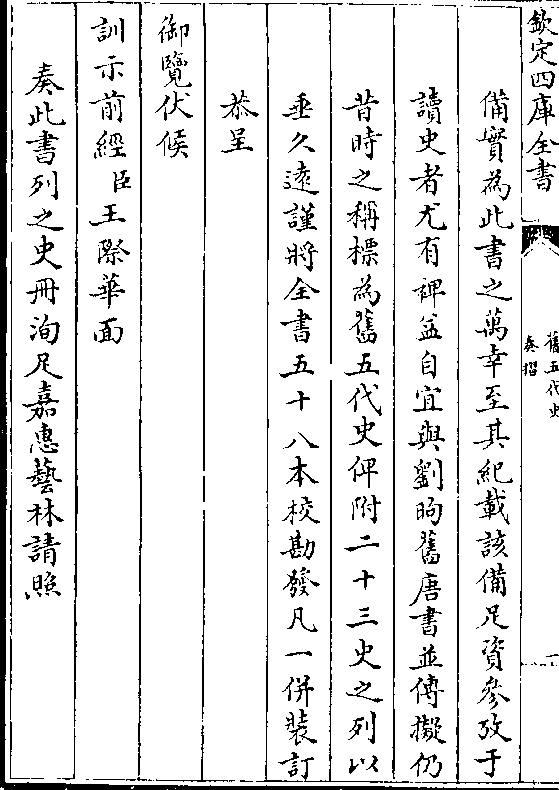 欽定四庫全書
舊五代史
奏摺
一
備實為此書之萬幸至其紀載該備足資參攷于
讀史者尤有裨益自宜與劉昫舊唐書並傳擬仍
昔時之稱標為舊五代史俾附二十三史之列以
垂久遠謹將全書五十八本校勘發凡一併裝訂
恭呈
御覽伏候
訓示前經臣王際華面
奏此書列之史冊洵足嘉惠藝林請照